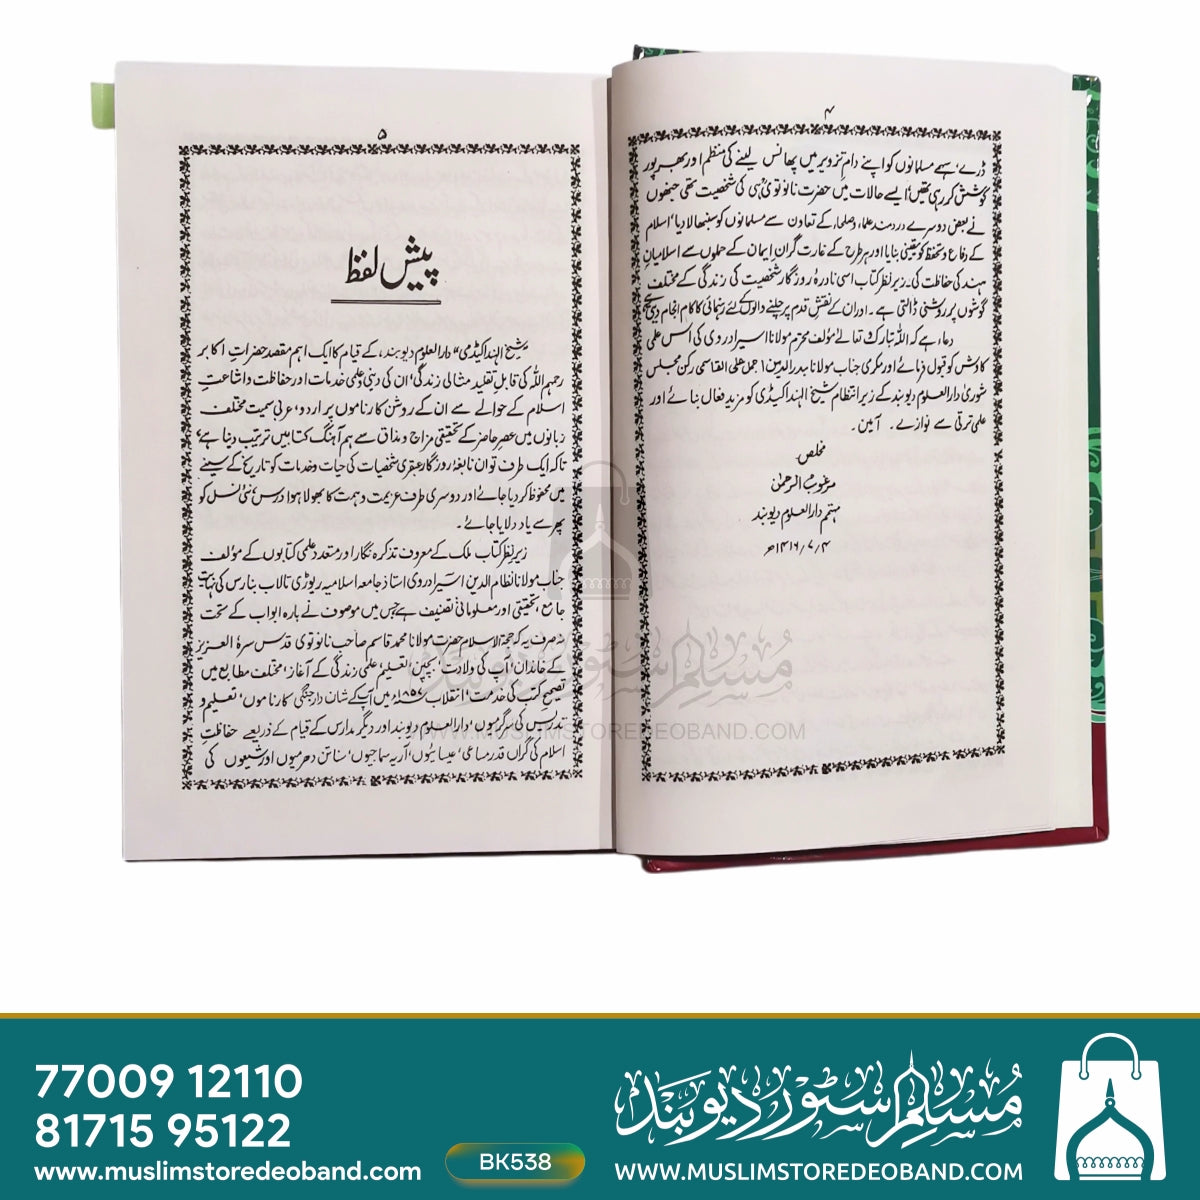 ۴
ڈرے، سہے مسلمانوں کو اپنے دامِ تزویر میں پھانس لینے کی منظم اور بھرپور
کوشش کر رہی تھیں، ایسے حالات میں حضرت نانوتویؒ ہی کی شخصیت تھی جنھوں
نے بعض دوسرے دردمند علماء وصلحاء کے تعاون سے مسلمانوں کو سنبھالا دیا، اسلام
کے دفاع و تحفظ کو یقینی بنایا اور ہر طرح کے غارت گران ایمان کے حملوں سے اسلامیانِ
ہند کی حفاظت کی۔ زیر نظر کتاب اسی نادرۂ روزگار شخصیت کی زندگی کے مختلف
گوشوں پر روشنی ڈالتی ہے۔ اور ان کے نقش قدم پر چلنے والوں کے لئے رہنمائی کا کام انجام دیگی
دعاء ہے کہ اللہ تبارک وتعالیٰ مؤلف محترم مولانا اسیر ادروی کی اس علمی
کاوش کو قبول فرمائے اور مکرمی جناب مولانا بدرالدین اجمل علی القاسمی رکن مجلس
شوریٰ دارالعلوم دیوبند کے زیر انتظام شیخ الہند اکیڈمی کو مزید فعال بنائے اور
علمی ترقی سے نوازے۔ آمین۔
مخلص
مرغوب الرحمٰن
مہتمم دارالعلوم دیوبند
۴/۷/۱۴۱۶ھ
۵
پیش لفظ
"شیخ الہند اکیڈمی" دارالعلوم دیوبند، کے قیام کا ایک اہم مقصد حضراتِ اکابر
رحمہم اللہ کی قابلِ تقلید مثالی زندگی، ان کی دینی و علمی خدمات اور حفاظت و اشاعتِ
اسلام کے حوالے سے ان کے روشن کارناموں پر اردو، عربی سمیت مختلف
زبانوں میں عصرِ حاضر کے تحقیقی مزاج و مذاق سے ہم آہنگ کتابیں ترتیب دینا ہے،
تاکہ ایک طرف تو ان نابغۂ روزگار عبقری شخصیات کی حیات وخدمات کو تاریخ کے سینے
میں محفوظ کر دیا جائے اور دوسری طرف عزیمت و ہمت کا بھولا ہوا درس، نئی نسل کو
پھر سے یاد دلایا جائے۔
زیر نظر کتاب ملک کے معروف تذکرہ نگار اور متعدد علمی کتابوں کے مؤلف
جناب مولانا نظام الدین اسیرؔ ادروی استاذ جامعہ اسلامیہ ریوڑی تالاب بنارس کی نہایت
جامع، تحقیقی اور معلوماتی تصنیف ہے جس میں موصوف نے بارہ ابواب کے تحت
نہ صرف یہ کہ حجۃ الاسلام حضرت مولانا محمد قاسم صاحب نانوتوی قدس سرہٗ العزیز
کے خاندان، آپ کی ولادت، بچپن، تعلیم، علمی زندگی کے آغاز، مختلف مطابع میں
تصحیح کتب کی خدمت، انقلاب ۱۸۵۷ء میں آپکے شاندار جنگی کارناموں، تعلیم و
تدریس کی سرگرمیوں، دارالعلوم دیوبند اور دیگر مدارس کے قیام کے ذریعے حفاظتِ
اسلام کی گراں قدر مساعی، عیسائیوں، آریہ سماجیوں، سناتن دھرمیوں اور شیعوں کی
مسلم سٹور دیوبند
WWW.MUSLIMSTOREDEOBAND.COM
77009 12110
81715 95122
www.muslimstoredeoband.com
BK538
مسلم سٹور دیوبند
WWW.MUSLIMSTOREDEOBAND.COM